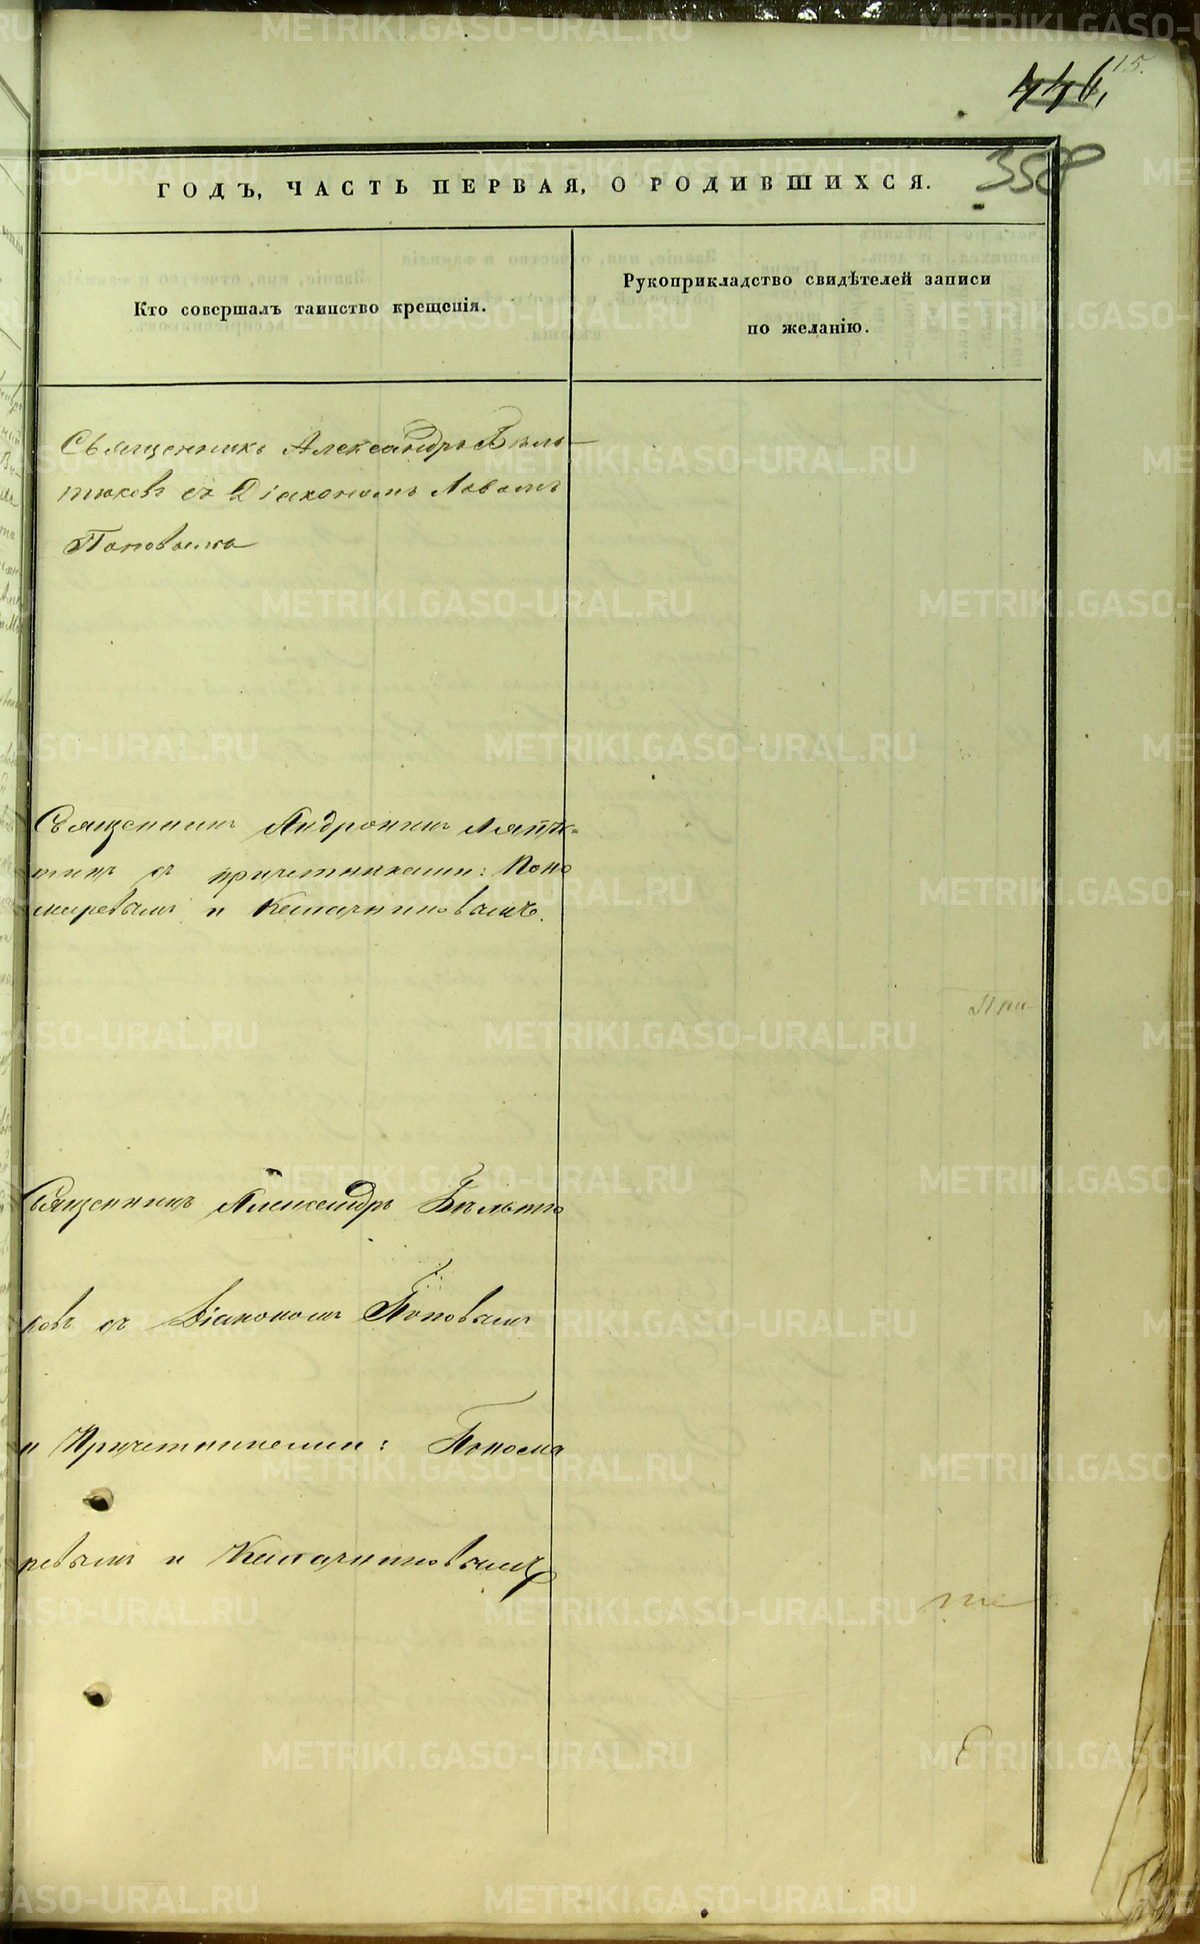 15.
446,
358
ГОДЪ, ЧАСТЬ ПЕРВАЯ, О РОДИВШИХСЯ.
Кто совершалъ таинство крещенія.
Рукоприкладство свидѣтелей записи
по желанію.
Священникъ Александръ Бѣль-
тюковъ съ Діакономъ
Поповымъ
Священникъ Андроникъ
съ причетниками: Поно
маревымъ и
Священникъ Александръ Бѣльтю
ковъ съ Діакономъ Поповымъ
и Причетниками: Понома
ревымъ и
METRIKI.GASO-URAL.RU